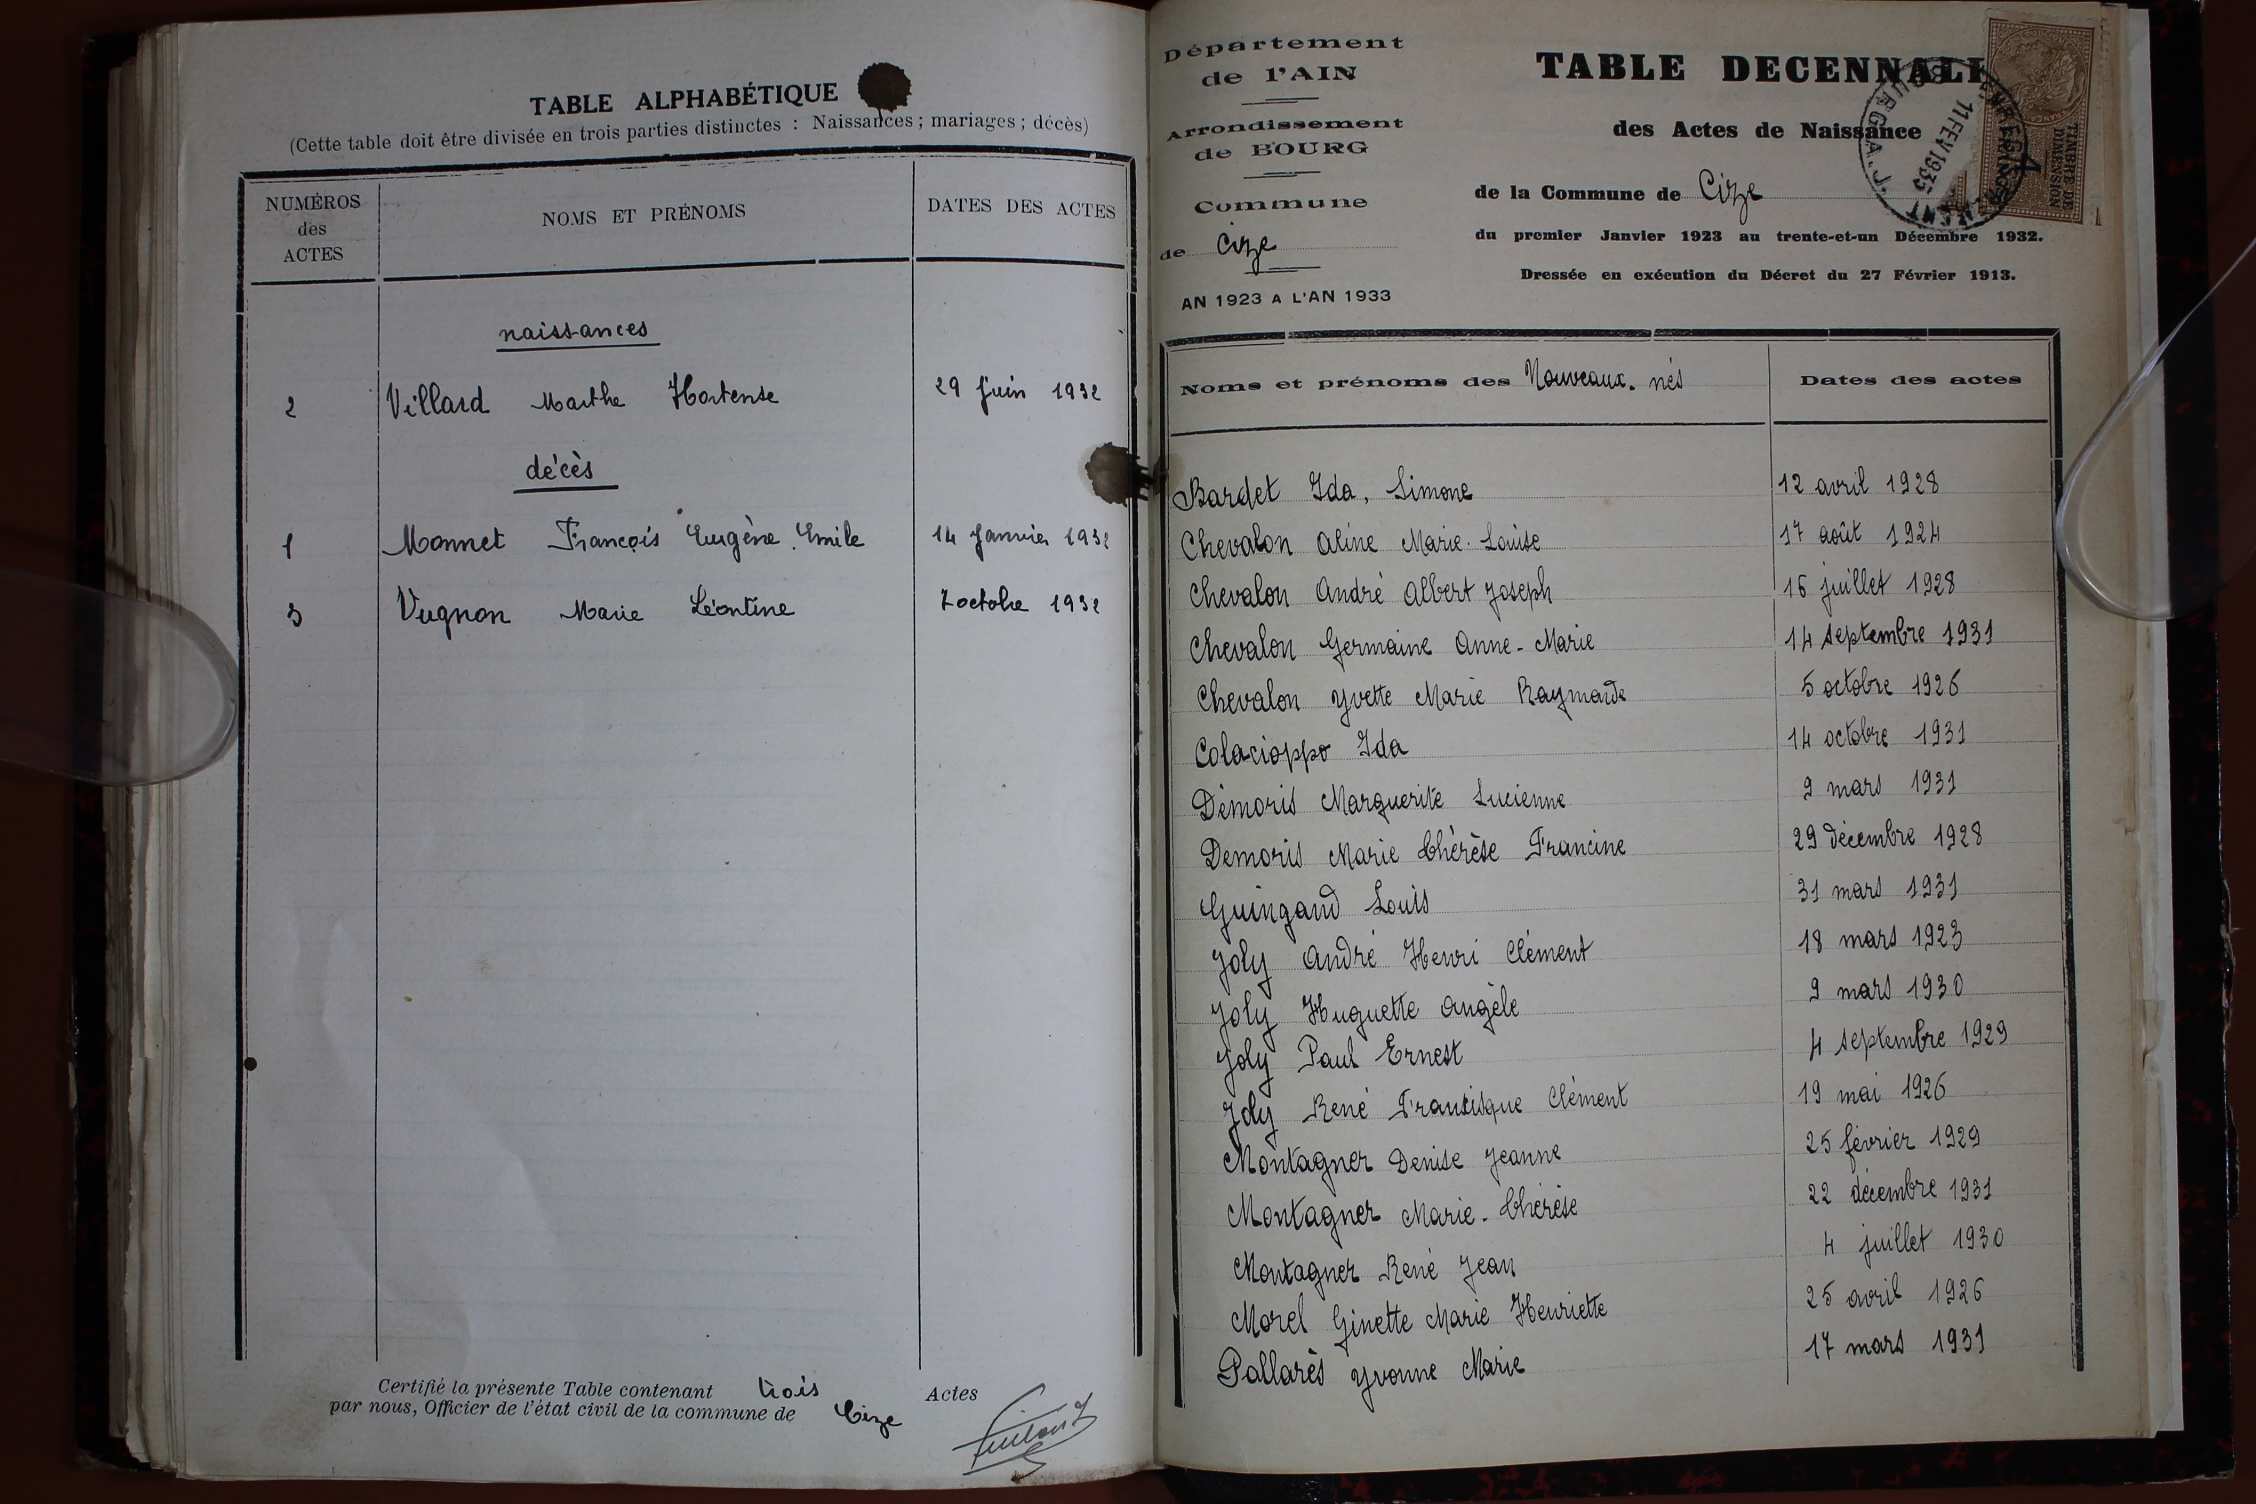 TABLE ALPHABÉTIQUE
(Cette table doit être divisée en trois parties distinctes : Naissances ; mariages ; décès)
NUMÉROS des ACTES NOMS ET PRÉNOMS DATES DES ACTES
naissances
2 Villard Marthe Hortense 29 Juin 1932
décès
1 Monnet François Eugène Emile 14 Janvier 1932
3 Vugnon Marie Léontine 7 octobre 1932
Certifié la présente Table contenant trois Actes
par nous, Officier de l'état civil de la commune de Cize
Département
de l'AIN
Arrondissement
de BOURG
Commune
de Cize
AN 1923 A L'AN 1933
TABLE DECENNALE
des Actes de Naissance
de la Commune de Cize
du premier Janvier 1923 au trente-et-un Décembre 1932.
Dressée en exécution du Décret du 27 Février 1913.
11 FEV 1935
TIMBRE DE
DIMENSION
Noms et prénoms des Nouveaux-nés Dates des actes
Bardet Ida, Simone 12 avril 1928
Chevalon Aline Marie-Louise 17 août 1924
Chevalon André Albert Joseph 16 juillet 1928
Chevalon Germaine Anne-Marie 14 septembre 1931
Chevalon Yvette Marie Raymande 5 octobre 1926
Colacioppo Ida 14 octobre 1931
Démoris Marguerite Lucienne 9 mars 1931
Demoris Marie Thérèse Francine 29 décembre 1928
Guingand Louis 31 mars 1931
Joly André Henri Clément 18 mars 1923
Joly Huguette Angèle 9 mars 1930
Joly Paul Ernest 4 septembre 1929
Joly René Francisque Clément 19 mai 1926
Montagner Denise Jeanne 25 février 1929
Montagner Marie-Thérèse 22 décembre 1931
Montagner René Jean 4 juillet 1930
Morel Ginette Marie Henriette 25 avril 1926
Pallarès Yvonne Marie 17 mars 1931